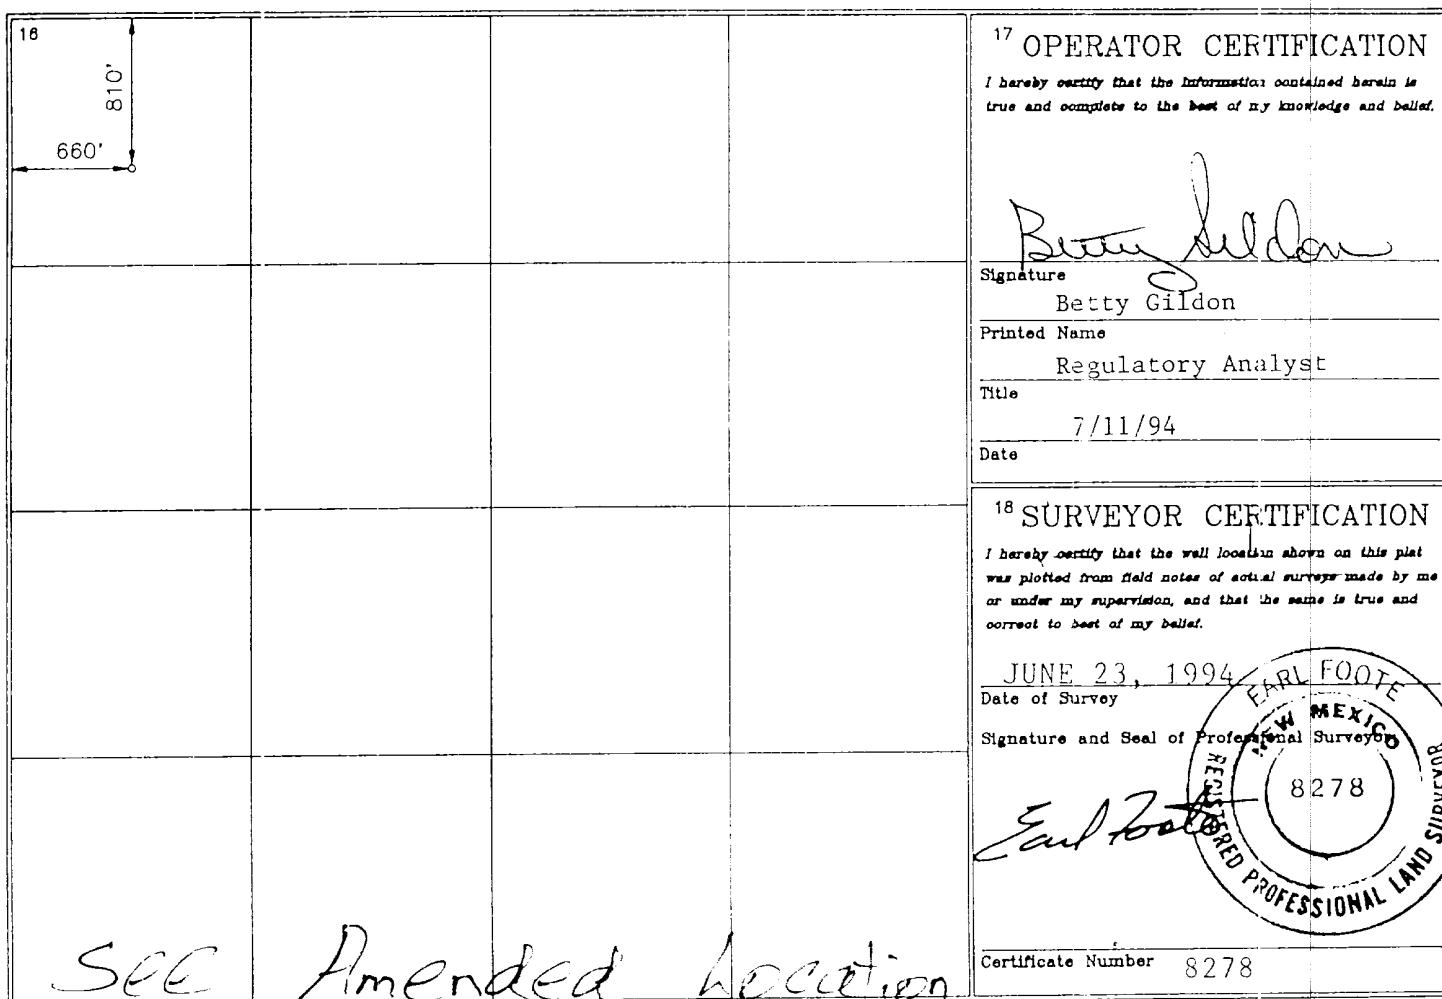 16
810'
660'
SEE Amended Location
17 OPERATOR CERTIFICATION
I hereby certify that the information contained herein is
true and complete to the best of my knowledge and belief.
Betty Gildon
Signature
Betty Gildon
Printed Name
Regulatory Analyst
Title
7/11/94
Date
18 SURVEYOR CERTIFICATION
I hereby certify that the well location shown on this plat
was plotted from field notes of actual surveys made by me
or under my supervision, and that the same is true and
correct to best of my belief.
JUNE 23, 1994
Date of Survey
Signature and Seal of Professional Surveyor:
EARL FOOTE
NEW MEXICO
8278
REGISTERED PROFESSIONAL LAND SURVEYOR
Earl Foote
Certificate Number 8278